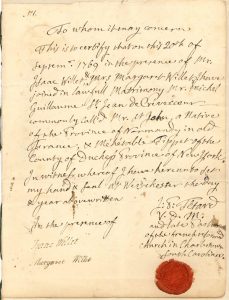 To whom it may concern
This is to certify that on this 20th of
Septem.r 1769 in the presence of Mr.
Isaac Willet Esqr & Margaret Willet I have
joined in lawfull Matrimony Mr. Michel
Guillaume St. Jean de Crevecoeur
commonly call'd Mr. St John, a Native
of the Province of Normandy in old
France; & Mehetable Tippet of the
County of Duchess Province of New York
In witness whereof I have hereunto set
my hand & seal at Westchester the day
& year above written
In the presence of
Isaac Willet
Margaret Willet
J. P. Tetard
V. D. M.
and late pastor
of the french reform'd
church in Charlestown
South Carolina